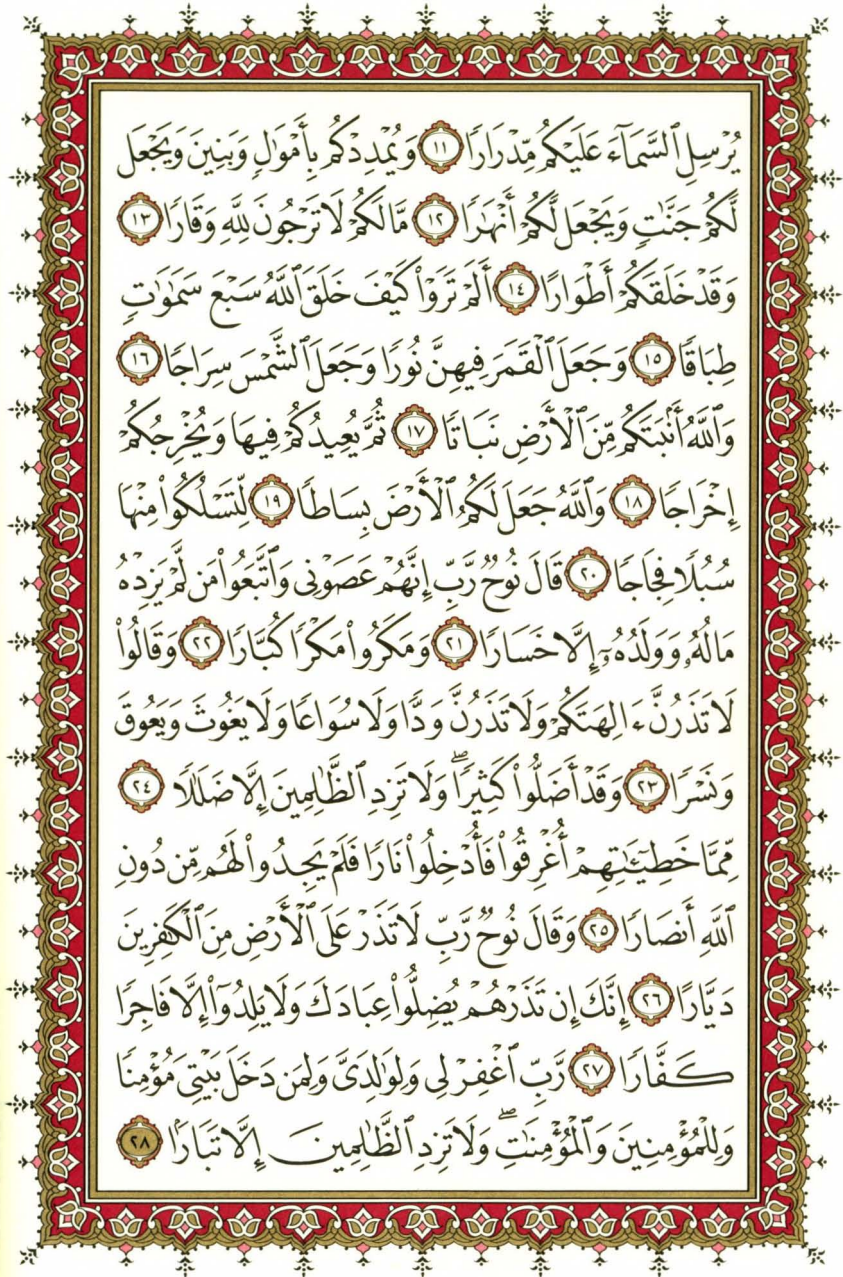 يُرْسِلِ ٱلسَّمَآءَ عَلَيْكُم مِّدْرَارًا ١١ وَيُمْدِدْكُم بِأَمْوَٰلٍ وَبَنِينَ وَيَجْعَل
لَّكُمْ جَنَّٰتٍ وَيَجْعَل لَّكُمْ أَنْهَٰرًا ١٢ مَّا لَكُمْ لَا تَرْجُونَ لِلَّهِ وَقَارًا ١٣
وَقَدْ خَلَقَكُمْ أَطْوَارًا ١٤ أَلَمْ تَرَوْا۟ كَيْفَ خَلَقَ ٱللَّهُ سَبْعَ سَمَٰوَٰتٍ
طِبَاقًا ١٥ وَجَعَلَ ٱلْقَمَرَ فِيهِنَّ نُورًا وَجَعَلَ ٱلشَّمْسَ سِرَاجًا ١٦
وَٱللَّهُ أَنۢبَتَكُم مِّنَ ٱلْأَرْضِ نَبَاتًا ١٧ ثُمَّ يُعِيدُكُمْ فِيهَا وَيُخْرِجُكُمْ
إِخْرَاجًا ١٨ وَٱللَّهُ جَعَلَ لَكُمُ ٱلْأَرْضَ بِسَاطًا ١٩ لِّتَسْلُكُوا۟ مِنْهَا
سُبُلًا فِجَاجًا ٢٠ قَالَ نُوحٌ رَّبِّ إِنَّهُمْ عَصَوْنِى وَٱتَّبَعُوا۟ مَن لَّمْ يَزِدْهُ
مَالُهُۥ وَوَلَدُهُۥٓ إِلَّا خَسَارًا ٢١ وَمَكَرُوا۟ مَكْرًا كُبَّارًا ٢٢ وَقَالُوا۟
لَا تَذَرُنَّ ءَالِهَتَكُمْ وَلَا تَذَرُنَّ وَدًّا وَلَا سُوَاعًا وَلَا يَغُوثَ وَيَعُوقَ
وَنَسْرًا ٢٣ وَقَدْ أَضَلُّوا۟ كَثِيرًا ۖ وَلَا تَزِدِ ٱلظَّٰلِمِينَ إِلَّا ضَلَٰلًا ٢٤
مِّمَّا خَطِيٓـَٰٔتِهِمْ أُغْرِقُوا۟ فَأُدْخِلُوا۟ نَارًا فَلَمْ يَجِدُوا۟ لَهُم مِّن دُونِ
ٱللَّهِ أَنصَارًا ٢٥ وَقَالَ نُوحٌ رَّبِّ لَا تَذَرْ عَلَى ٱلْأَرْضِ مِنَ ٱلْكَٰفِرِينَ
دَيَّارًا ٢٦ إِنَّكَ إِن تَذَرْهُمْ يُضِلُّوا۟ عِبَادَكَ وَلَا يَلِدُوٓا۟ إِلَّا فَاجِرًا
كَفَّارًا ٢٧ رَّبِّ ٱغْفِرْ لِى وَلِوَٰلِدَىَّ وَلِمَن دَخَلَ بَيْتِىَ مُؤْمِنًا
وَلِلْمُؤْمِنِينَ وَٱلْمُؤْمِنَٰتِ ۖ وَلَا تَزِدِ ٱلظَّٰلِمِينَ إِلَّا تَبَارًۢا ٢٨